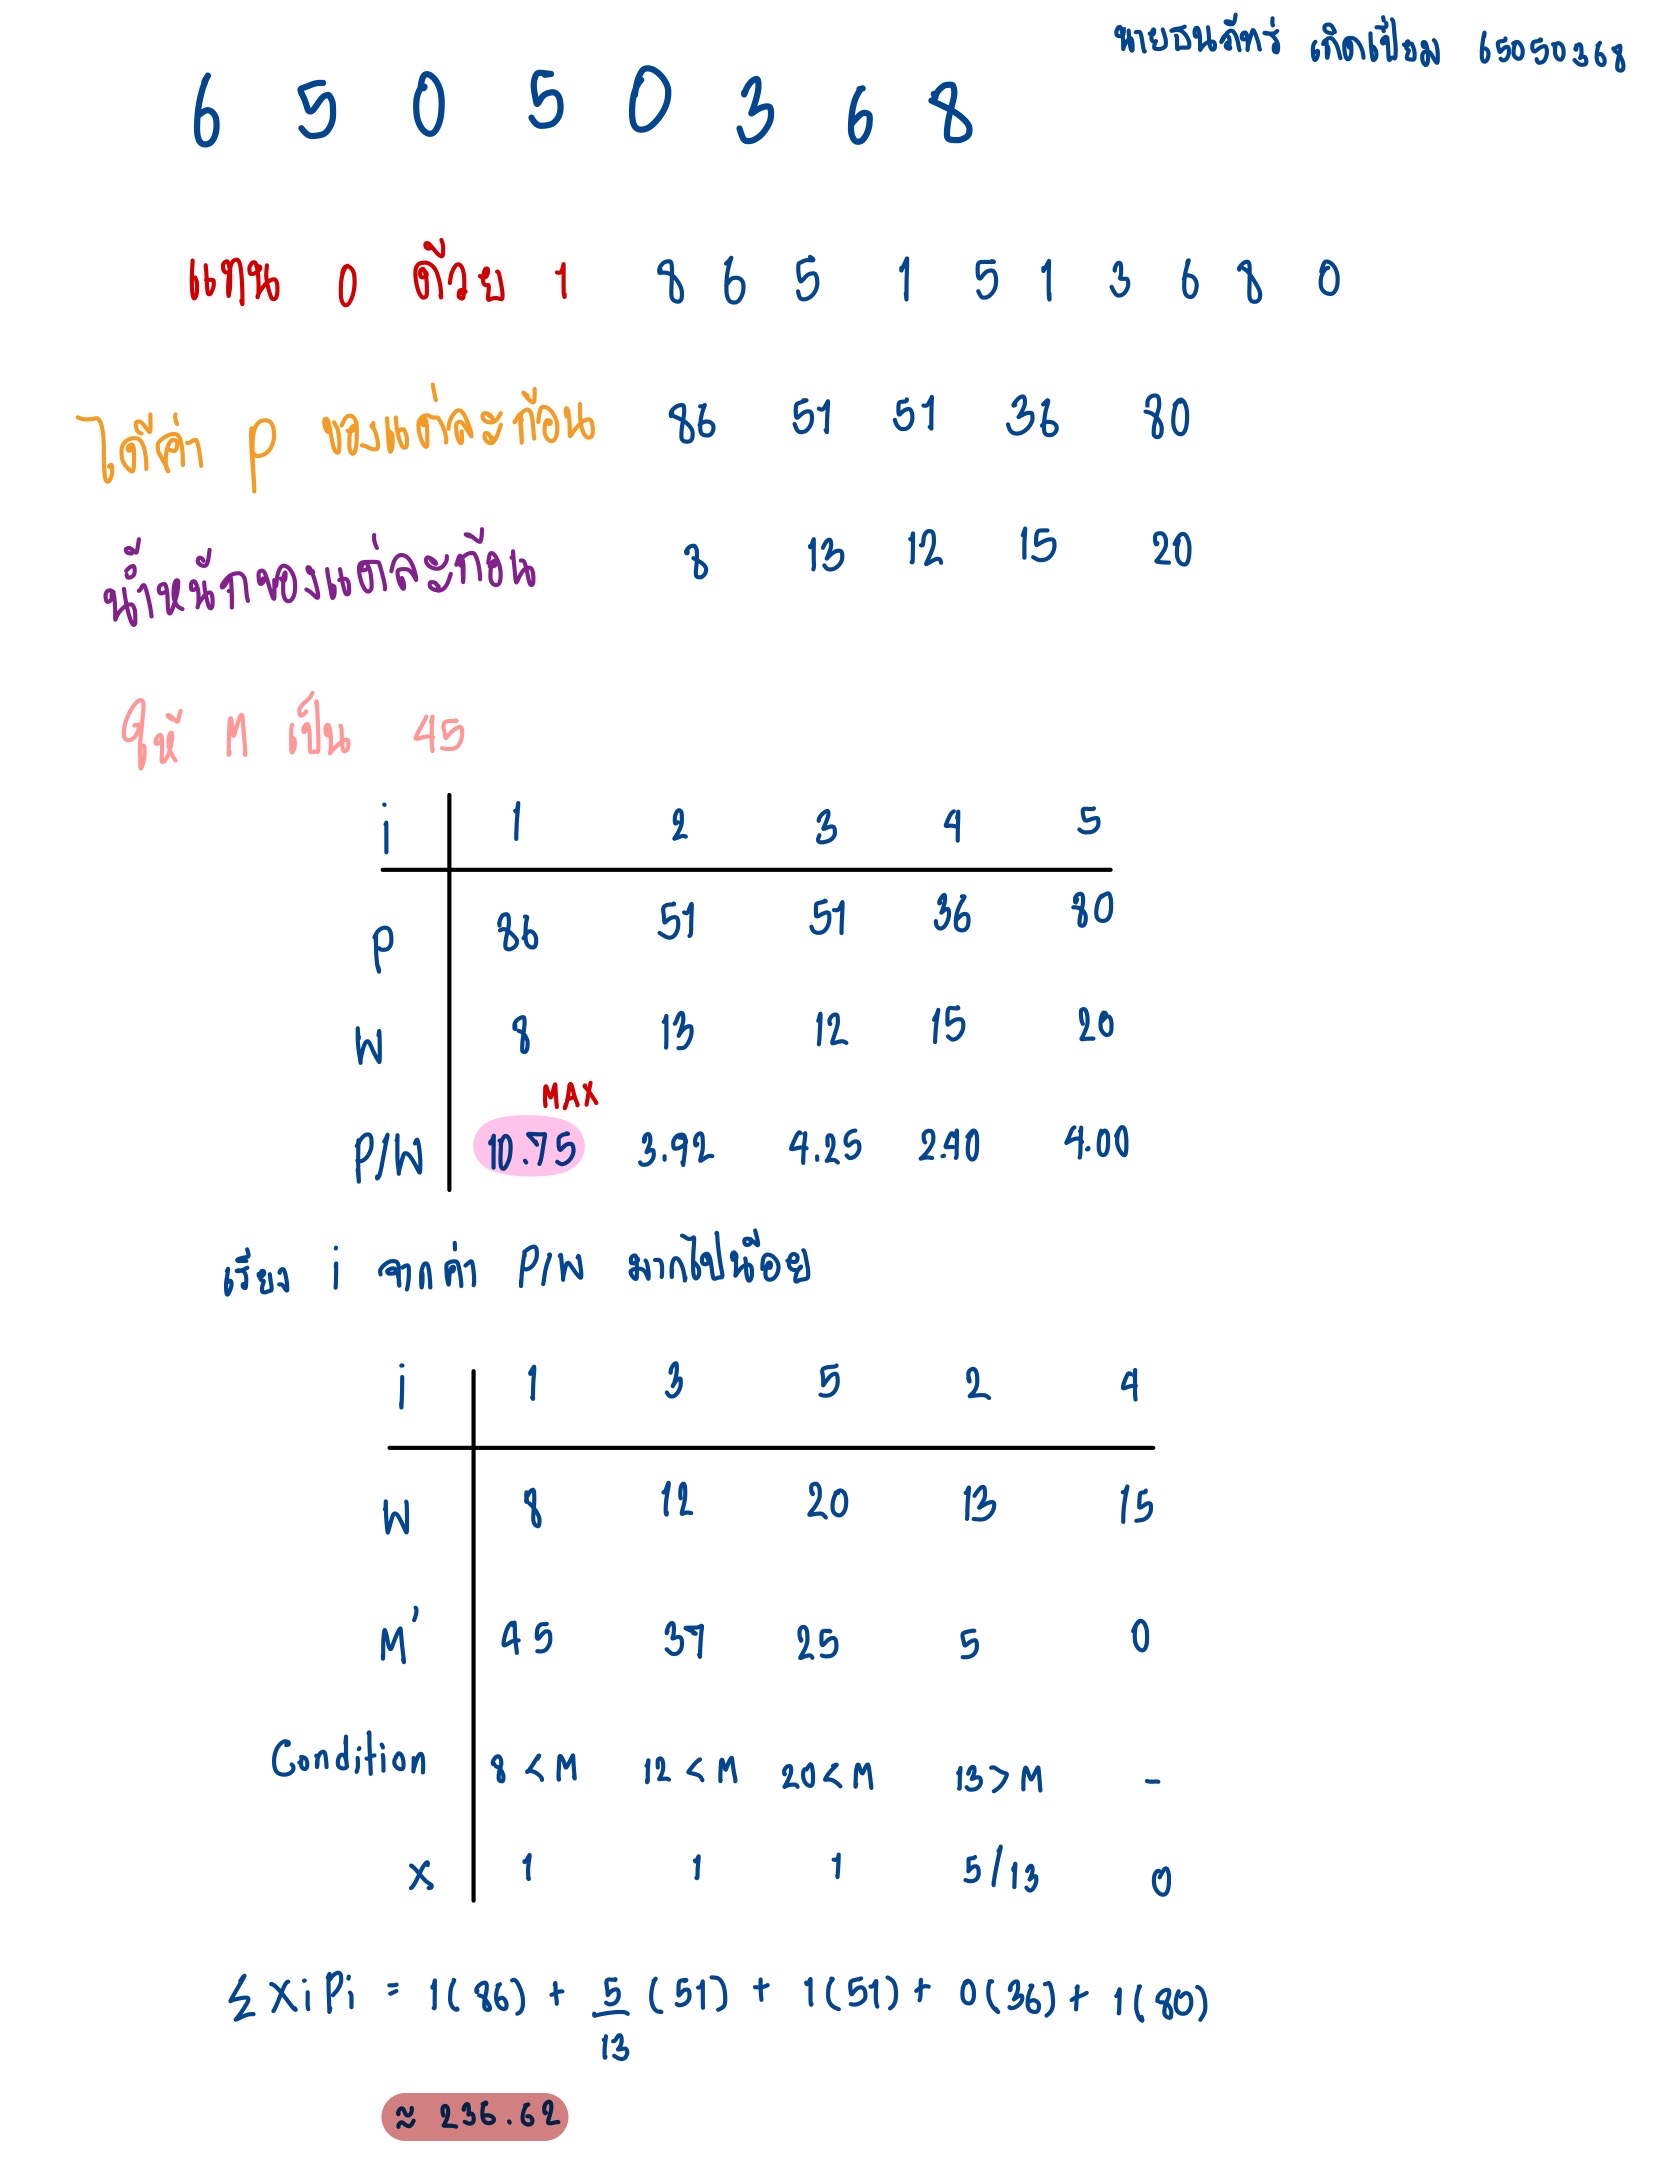 นายธนภัทร์ เกิดเปี่ยม 65050368
6 5 0 5 0 3 6 8
แทน 0 ด้วย 1 8 6 5 1 5 1 3 6 8 0
ได้ค่า P ของแต่ละก้อน 86 51 51 36 80
น้ำหนักของแต่ละก้อน 8 13 12 15 20
ให้ M เป็น 45
i 1 2 3 4 5
P 86 51 51 36 80
W 8 13 12 15 20
MAX
P/W 10.75 3.92 4.25 2.40 4.00
เรียง i จากค่า P/W มากไปน้อย
i 1 3 5 2 4
W 8 12 20 13 15
M' 45 37 25 5 0
Condition 8 < M 12 < M 20 < M 13 > M -
X 1 1 1 5/13 0
∑ xi Pi = 1(86) + 5/13 (51) + 1(51) + 0(36) + 1(80)
≈ 236.62